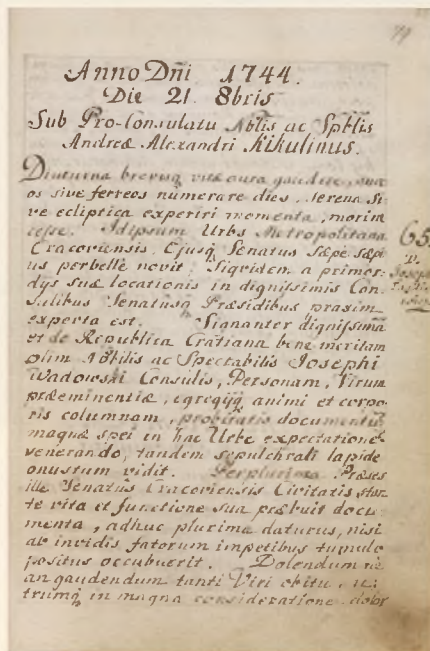 79
Anno Dñi 1744.
Die 21 8bris
Sub Pro-Consulatu Nblis ac Sptlis
Andreæ Alexandri Kikulinus.
Diuturna brevisq vitæ aura gaudere,
os sive ferreos numerare dies, serena si-
ve ecliptica experiri momenta, morim
esse. Idipsum Urbs Metropolitana
Cracoviensis, Ejusq Senatus sæpe sæpi
us perbelle novit; Siqvidem a primor-
dys suæ locationis in dignissimis Con
Sulibus Senatusq Præsidibus praxim
experta est. Signanter dignissimã
et de Republica Cratiana bene meritam
olim Nobilis ac Spectabilis Josephi
Wadowski Consulis, Personam, Virum
præeminentiæ, egregijq animi et corpo
ris columnam, probitatis documentum
magnæ spei in hac Urbe expectatione
venerando, tandem sepulchrali lapide
onustum vidit. Perplurima Præses
ille Senatus Cracoviensis Civitatis
te vita et functione sua præbuit docu-
menta, adhuc plurima daturus, nisi
ab invidis fatorum impetibus tumulo
positus occubuerit. Dolendum ne
an gaudendum tanti Viri obitu, u-
trumq in magna consideratione dolor
65.